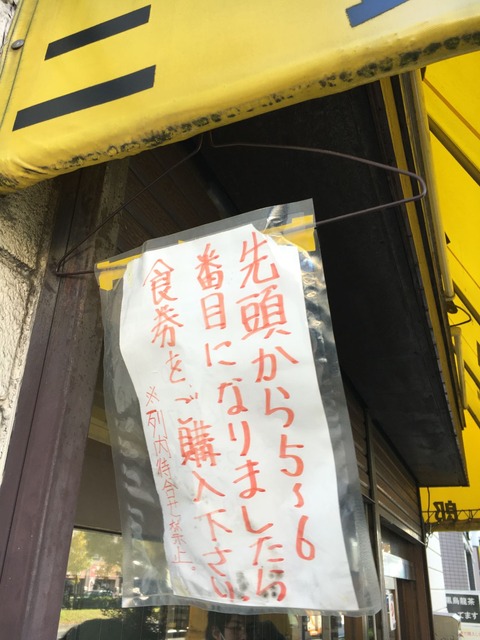 二
先頭から5~6
番目になりましたら
食券をご購入下さい
※列内待合せ禁止
郎
黒烏龍茶
てます